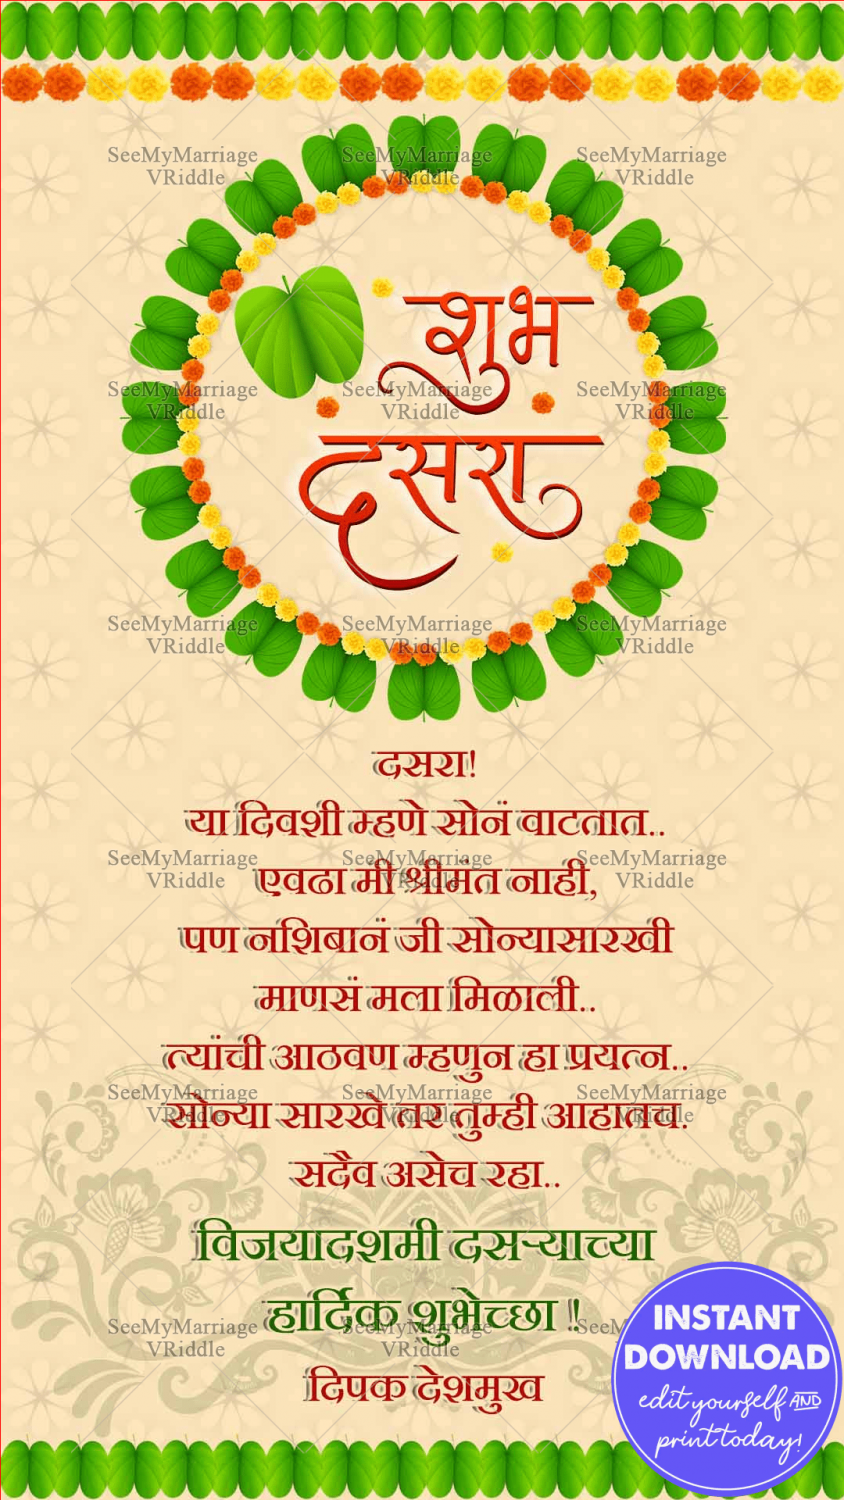 SeeMyMarriage SeeMyMarriage SeeMyMarriage
VRiddle VRiddle VRiddle
शुभ
SeeMyMarriage SeeMyMarriage SeeMyMarriage
VRiddle VRiddle VRiddle
दसरा
SeeMyMarriage SeeMyMarriage SeeMyMarriage
VRiddle VRiddle VRiddle
दसरा!
या दिवशी म्हणे सोनं वाटतात..
SeeMyMarriage SeeMyMarriage SeeMyMarriage
VRiddle VRiddle VRiddle
एवढा मी श्रीमंत नाही,
पण नशिबानं जी सोन्यासारखी
माणसं मला मिळाली..
त्यांची आठवण म्हणुन हा प्रयत्न..
SeeMyMarriage SeeMyMarriage SeeMyMarriage
VRiddle VRiddle VRiddle
सोन्या सारखे तर तुम्ही आहातच.
सदैव असेच रहा..
विजयादशमी दसऱ्याच्या
हार्दिक शुभेच्छा !
SeeMyMarriage SeeMyMarriage SeeM
VRiddle VRiddle
दिपक देशमुख
INSTANT
DOWNLOAD
edit yourself AND
print today!